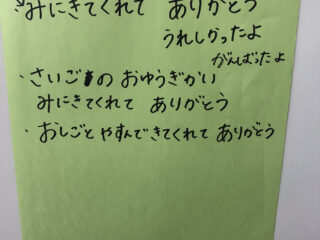 みにきてくれて ありがとう
うれしかったよ
がんばったよ
・さいごの おゆうぎかい
みにきてくれて ありがとう
・おしごと やすんできてくれて ありがとう